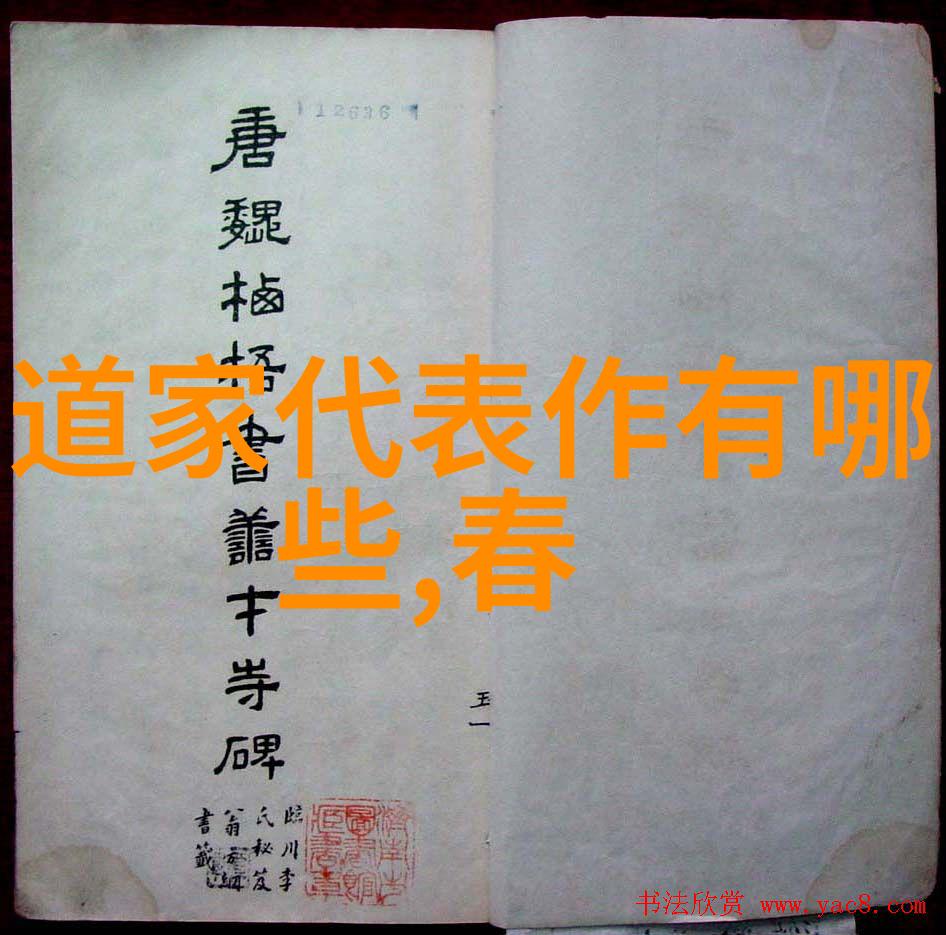 道家代表作有哪
些,春
12636
唐魏栖梧書善才寺碑
臨川李
氏秘笈
翁方綱
書籤
五一
书法欣赏 www.yac8.com